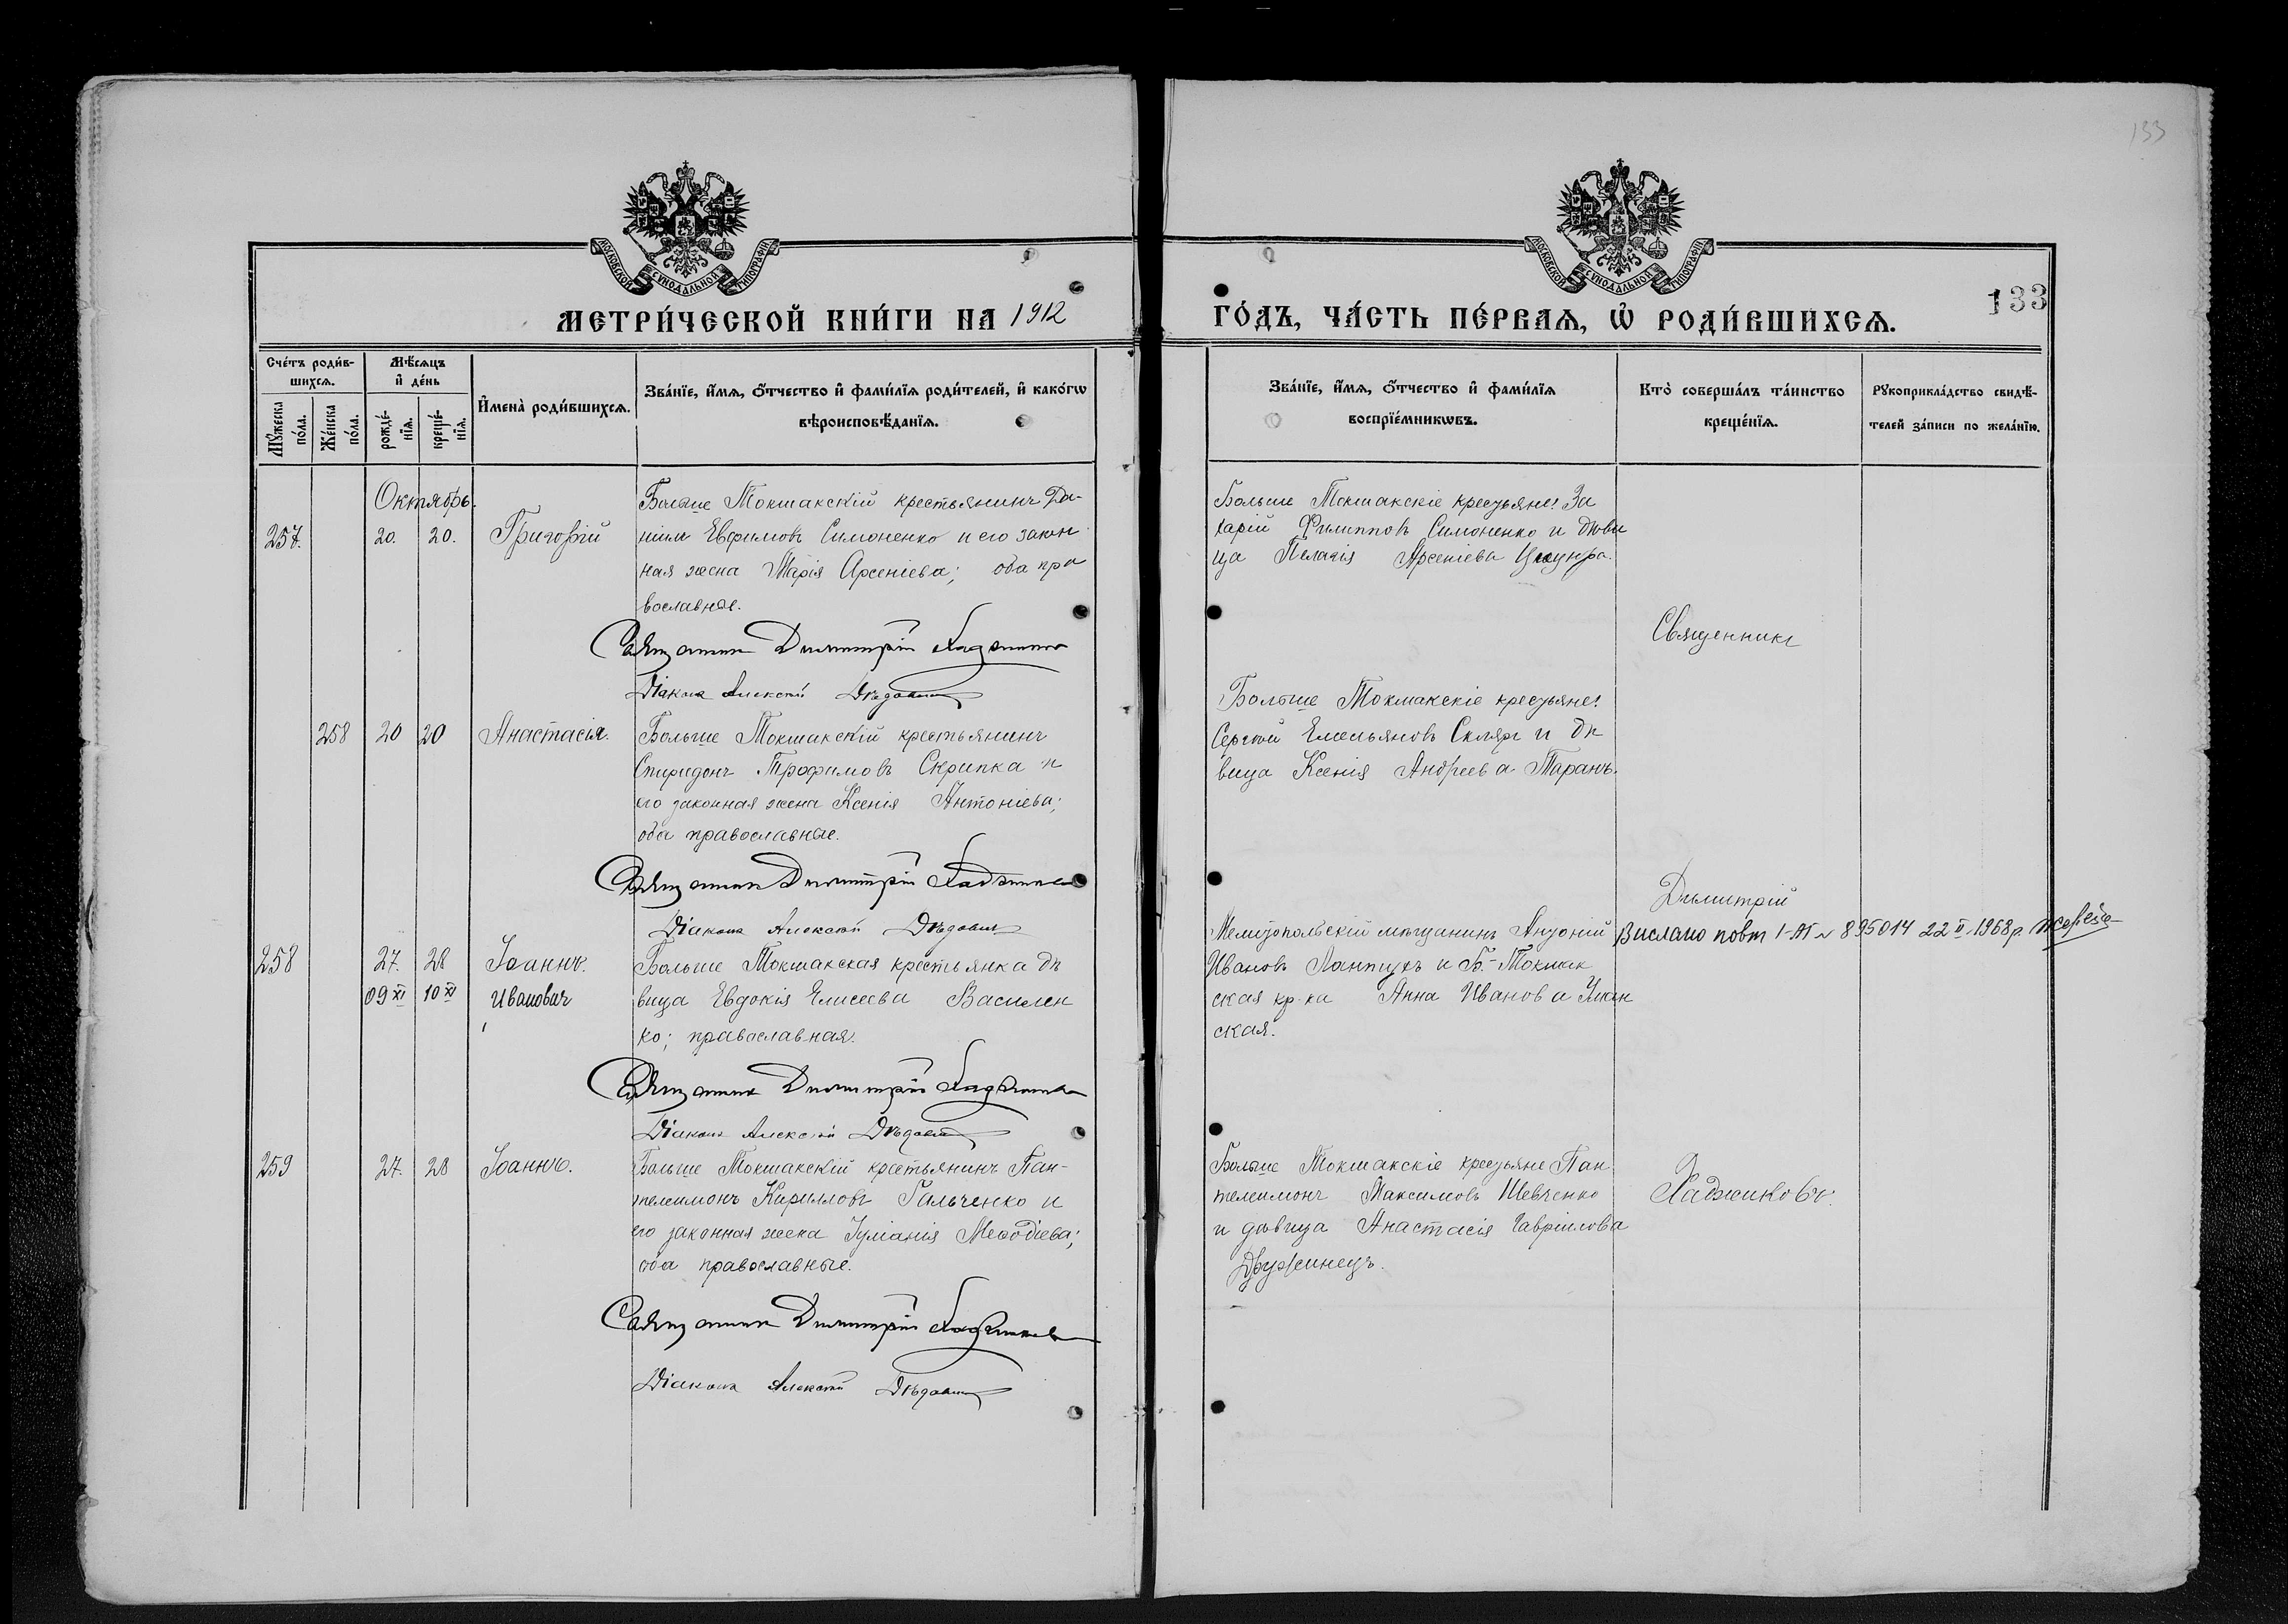 133
МОСКОВСКОЙ СѴНОДАЛЬНОЙ ТИПОГРАФІИ
МЕТРИ́ЧЕСКОЙ КНИ́ГИ НА 1912
Сче́тъ роди́в-
шихсѧ.
Мꙋ́жеска по́ла.
Же́нска по́ла.
Мѣ́сѧцъ
и҆ де́нь
рожде́-
нїѧ.
креще́-
нїѧ.
И҆мена̀ роди́вшихсѧ.
Зва́нїе, и҆́мѧ, ѻ҆́тчество и҆ фами́лїѧ роди́телей, и҆ како́гѡ
вѣроисповѣ́данїѧ.
Октябрь.
257.
20.
20.
Григорій
Больше Токмакскій крестьянинъ Да-
ніилъ Евфимовъ Симоненко и его закон
ная жена Марія Арсеніева; оба пра
вославные.
Священникъ Димитрій Хаджиновъ
Діаконъ Алексѣй
258
20
20
Анастасія.
Больше Токмакскій крестьянинъ
Спиридонъ Трофимовъ Скрипка и
его законная жена Ксенія Антоніева;
оба православные.
Священникъ Димитрій Хаджиновъ
Діаконъ Алексѣй
258
27.
28
Іоаннъ.
09 XI
10 XI
Иванович
Больше Токмакская крестьянка дѣ
вица Евдокія Елисеева Василен
ко; православная.
Священникъ Димитрій Хаджиновъ
Діаконъ Алексѣй
259
27.
28
Іоаннъ.
Больше Токмакскій крестьянинъ Пан-
телеимонъ Кирилловъ Гальченко и
его законная жена Іуліанія Меѳодіева;
оба православные.
Священникъ Димитрій Хаджиновъ
Діаконъ Алексѣй
МОСКОВСКОЙ СѴНОДАЛЬНОЙ ТИПОГРАФІИ
133
ГО́ДЪ, ЧА́СТЬ ПЕ́РВАѦ, Ѡ҆ РОДИ́ВШИХСѦ.
Зва́нїе, и҆́мѧ, ѻ҆́тчество и҆ фами́лїѧ
воспрїе́мникѡвъ.
Кто̀ соверша́лъ та́инство
креще́нїѧ.
Рꙋкоприкла́дство свидѣ́-
телей за́писи по жела́нїю.
Больше Токмакскіе крестьяне: За
харій Филипповъ Симоненко и дѣви
ца Пелагія Арсеніева
Священникъ
Больше Токмакскіе крестьяне:
Сергѣй Емельяновъ Скляръ и дѣ
вица Ксенія Андреева Таранъ.
Димитрій
Мелитопольскій мѣщанинъ Антоній
Вислано повт I-АП № 895014 22 II 1968 р.
Ивановъ и Б.-Токмак
ская кр-ка Анна Иванова
ская.
Больше Токмакскіе крестьяне Пан
телеимонъ Максимовъ Шевченко
и дѣвица Анастасія Гавріилова
Дружинецъ.
Хаджиновъ.